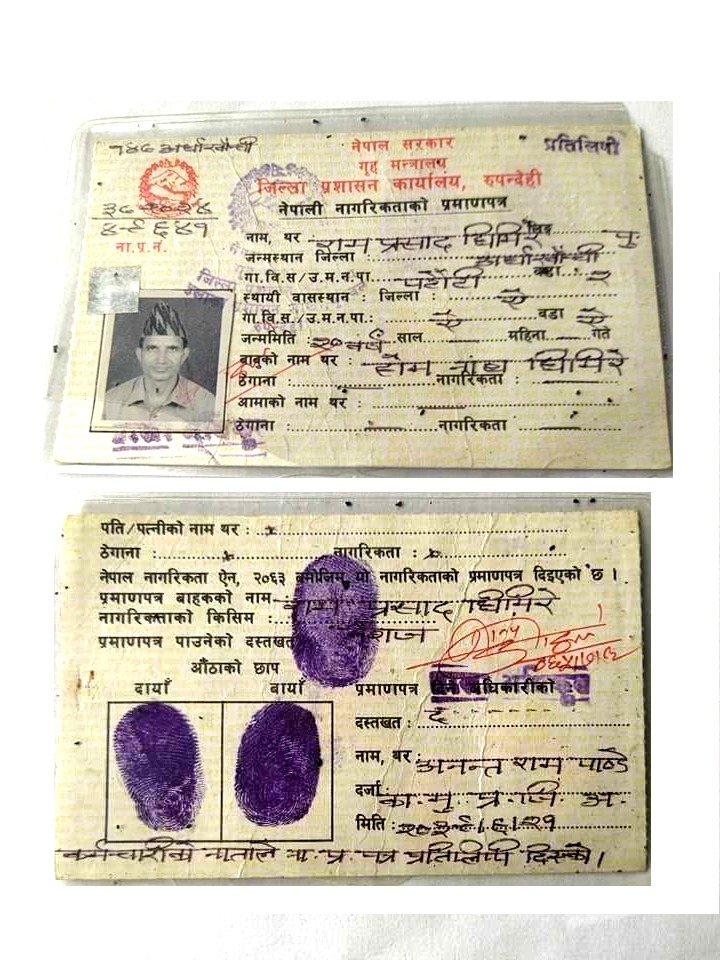 ७४८ अर्घाखाँची
नेपाल सरकार
प्रतिलिपी
गृह मन्त्रालय
जिल्ला प्रशासन कार्यालय, रुपन्देही
नेपाली नागरिकताको प्रमाणपत्र
ना.प्र.नं.
नाम, थर : राम प्रसाद घिमिरे लिङ्ग पु.
जन्मस्थान जिल्ला : अर्घाखाँची
गा.वि.स/उ.म.न.पा. पटौटी वडा : २
स्थायी वासस्थान : जिल्ला : ऐ
गा.वि.स./उ.म.न.पा.: ऐ वडा ऐ
जन्ममिति : २० वर्ष साल महिना गते
बाबुको नाम थर : होम नाथ घिमिरे
ठेगाना : नागरिकता :
आमाको नाम थर :
ठेगाना : नागरिकता :
पति/पत्नीको नाम थर : x
ठेगाना : x नागरिकता : x
नेपाल नागरिकता ऐन, २०६३ बमोजिम यो नागरिकताको प्रमाणपत्र दिइएको छ ।
प्रमाणपत्र बाहकको नाम राम प्रसाद घिमिरे
नागरिकताको किसिम : वंशज
प्रमाणपत्र पाउनेको दस्तखत
औंठाको छाप
दायाँ बायाँ
प्रमाणपत्र दिने अधिकारीको :
दस्तखत : द.
नाम, थर : अनन्त राम पाण्डे
दर्जा का. मु. प्र. जि. अ.
मिति :
कर्मचारीको नाताले ना. प्र. पत्र प्रतिलिपी दिएको ।